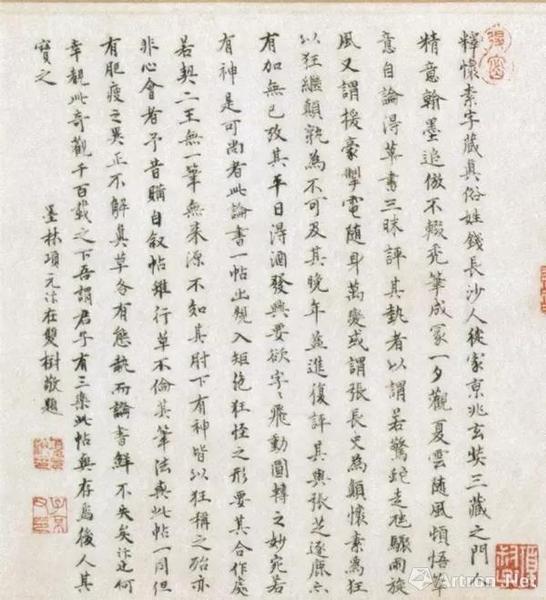 釋懷素字藏真俗姓錢長沙人徙家京兆玄奘三藏之門人
精意翰墨追倣不輟禿筆成冢一夕觀夏雲隨風頓悟筆
意自論得草書三昧評其執者以謂若驚蛇走虺驟雨旋
風又謂援豪掣電隨身萬變或謂張長史為顛懷素為狂
以狂繼顛孰為不可及其晚年益進復評其與張芝逐鹿亦
有加無已攷其平日得酒發興要欲字〻飛動圓轉之妙宛若
有神是可尚者此論書一帖出規入矩絶狂怪之形要其合作處
若契二王無一筆無來源不知其肘下有神皆以狂稱之殆亦
非心會者予昔購自敘帖雖行草不倫其筆法與此帖一同但
有肥瘦之異正不解真草各有態執而論書鮮不失矣汴也何
幸觀此奇觀千百載之下吾謂君子有三樂此帖與存焉後人其
寶之
墨林項元汴在雙樹敬題
Artron.Net